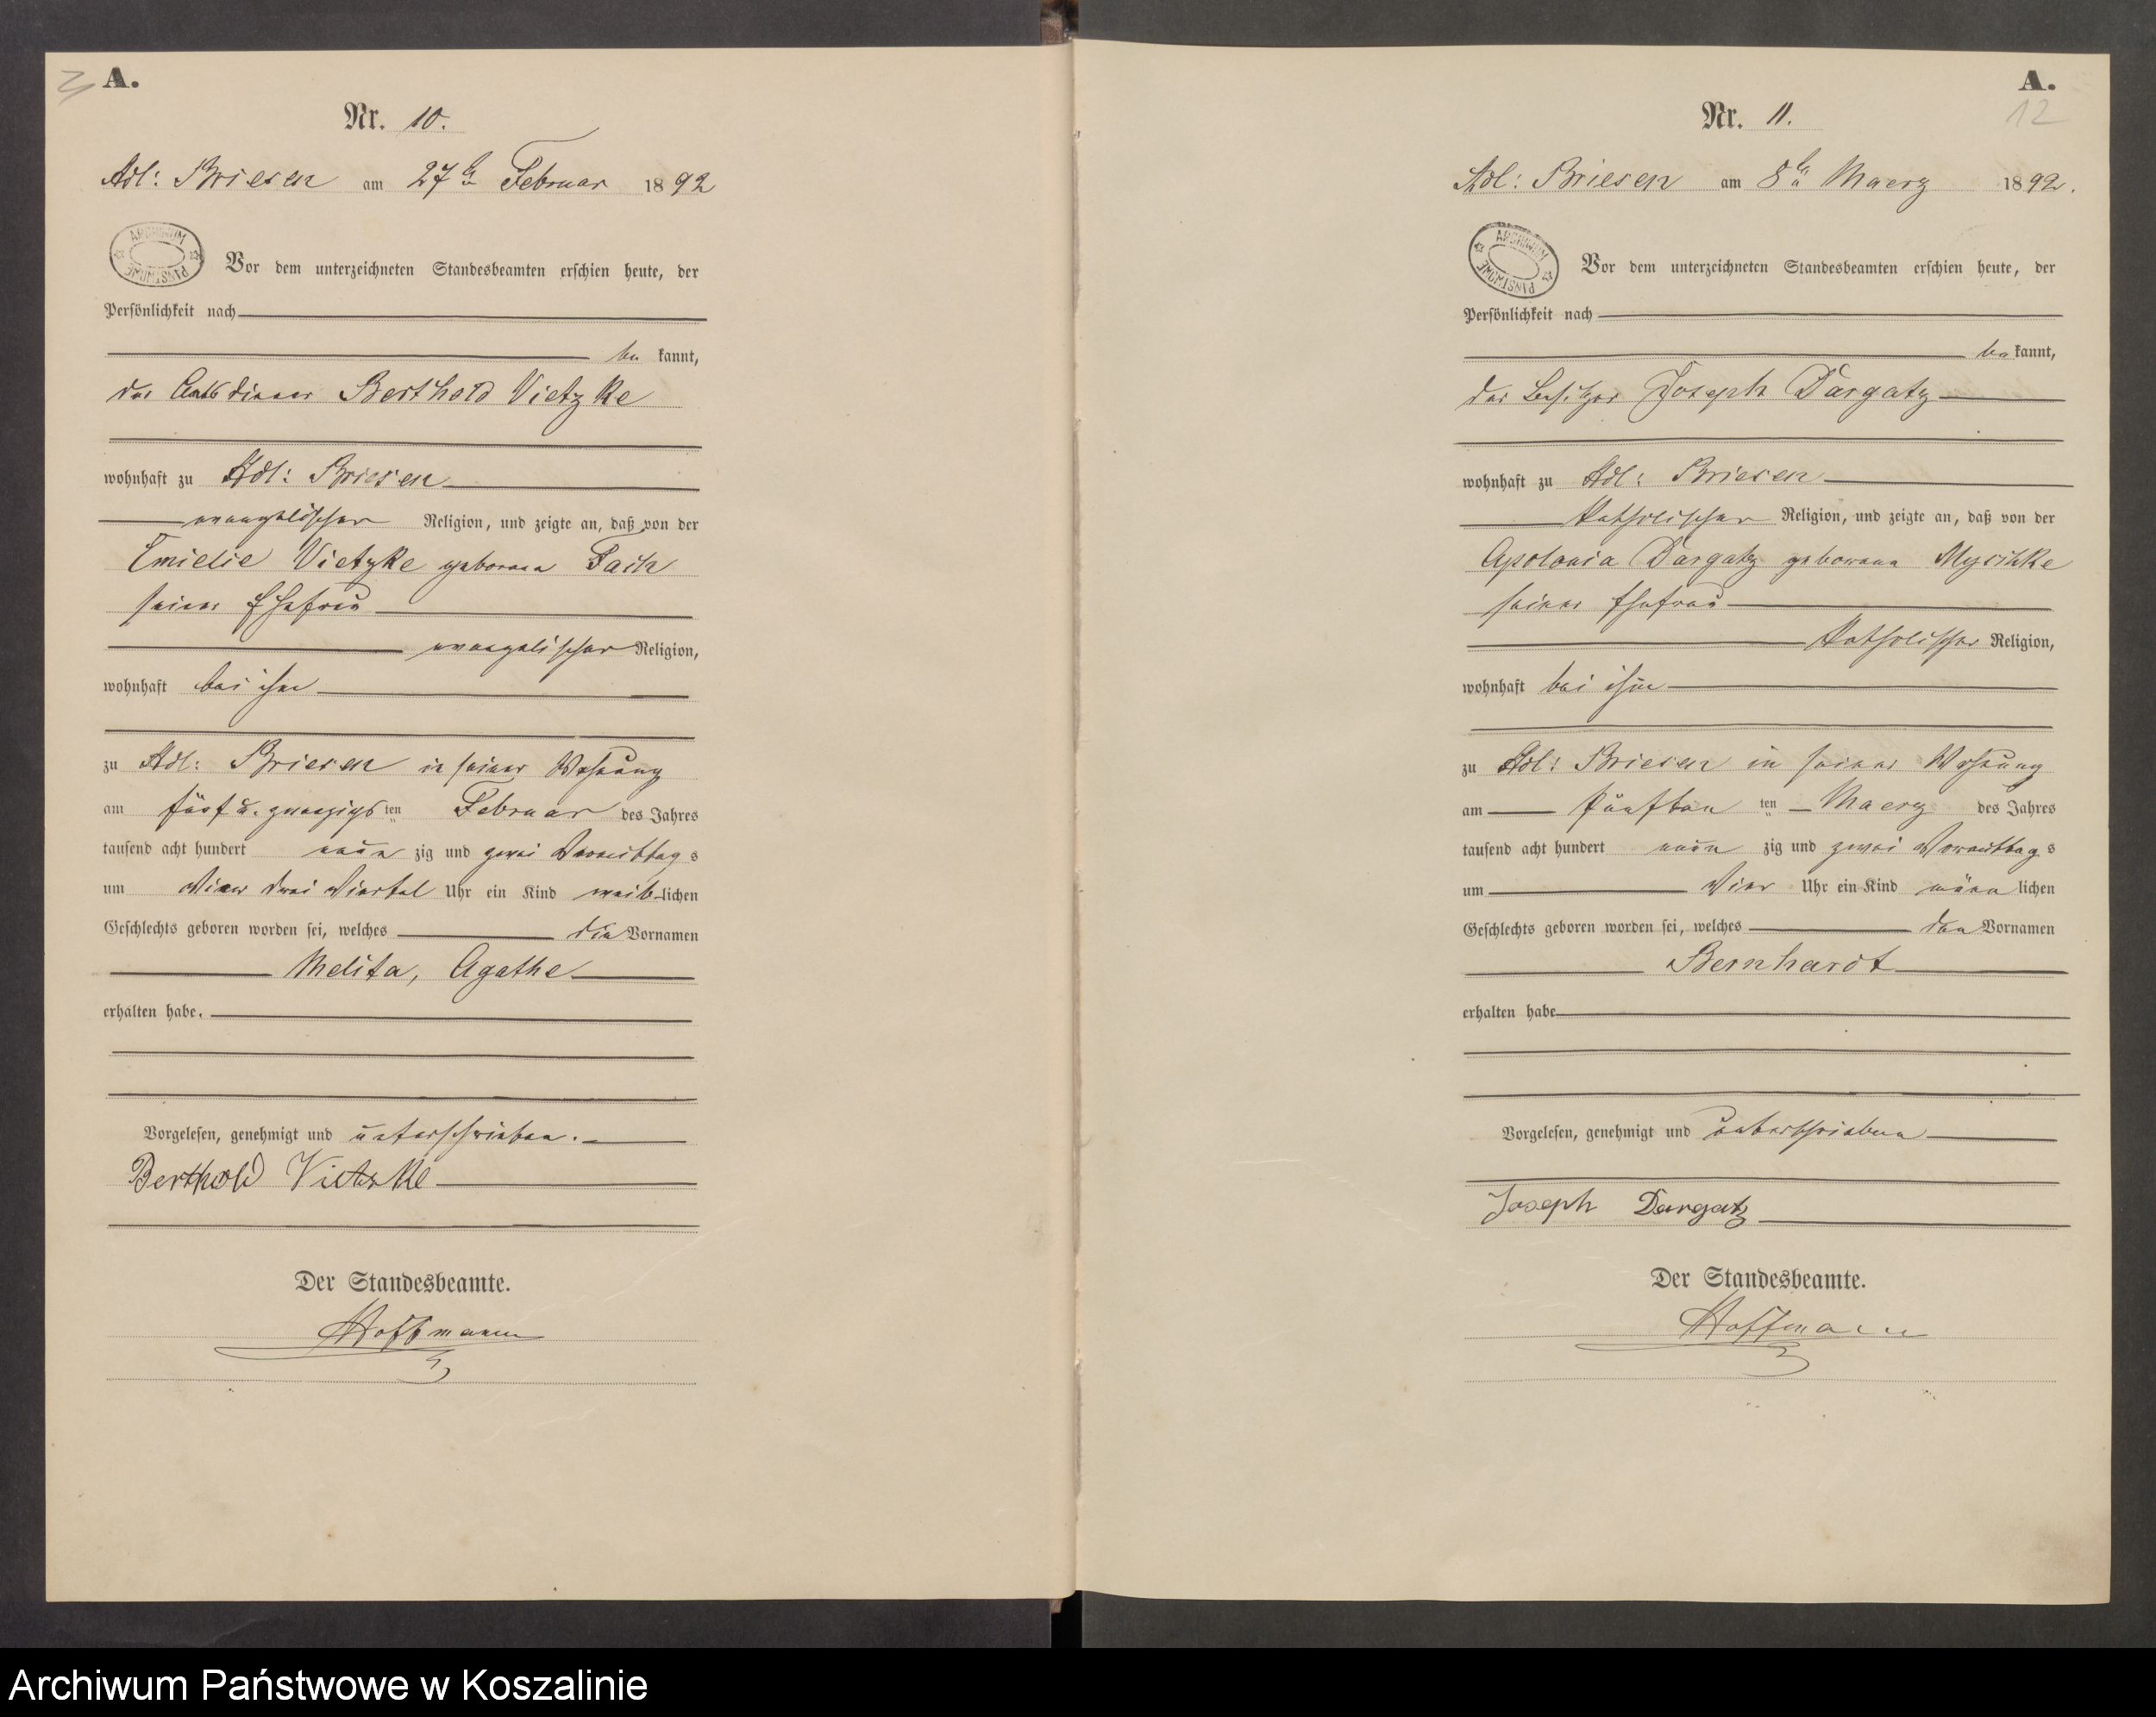 A.
Nr. 10.
Adl: Briesen am 27ten Februar 1892
ARCHIWUM PAŃSTWOWE
Vor dem unterzeichneten Standesbeamten erschien heute, der
Persönlichkeit nach
be kannt,
der Amtsdiener Berthold Vietzke
wohnhaft zu Adl: Briesen
evangelischer Religion, und zeigte an, daß von der
Emielie Vietzke geborene
seiner Ehefrau
evangelischer Religion,
wohnhaft bei ihm
zu Adl: Briesen in seiner Wohnung
am fünf u. zwanzigsten Februar des Jahres
tausend acht hundert neun zig und zwei Vormittags
um Vier drei Viertel Uhr ein Kind weiblichen
Geschlechts geboren worden sei, welches die Vornamen
Melita, Agathe
erhalten habe.
Vorgelesen, genehmigt und unterschrieben.
Berthold Vietzke
Der Standesbeamte.
Hoffmann
A.
12
Nr. 11.
Adl: Briesen am 8ten Maerz 1892.
ARCHIWUM PAŃSTWOWE
Vor dem unterzeichneten Standesbeamten erschien heute, der
Persönlichkeit nach
be kannt,
der Besitzer Joseph Dargatz
wohnhaft zu Adl: Briesen
katholischer Religion, und zeigte an, daß von der
Apolonia Dargatz geborene Myschke
seiner Ehefrau
katholischer Religion,
wohnhaft bei ihm
zu Adl: Briesen in seiner Wohnung
am fünften ten Maerz des Jahres
tausend acht hundert neun zig und zwei Vormittags
um Vier Uhr ein Kind männlichen
Geschlechts geboren worden sei, welches den Vornamen
Bernhardt
erhalten habe
Vorgelesen, genehmigt und unterschrieben
Joseph Dargatz
Der Standesbeamte.
Hoffmann
Archiwum Państwowe w Koszalinie